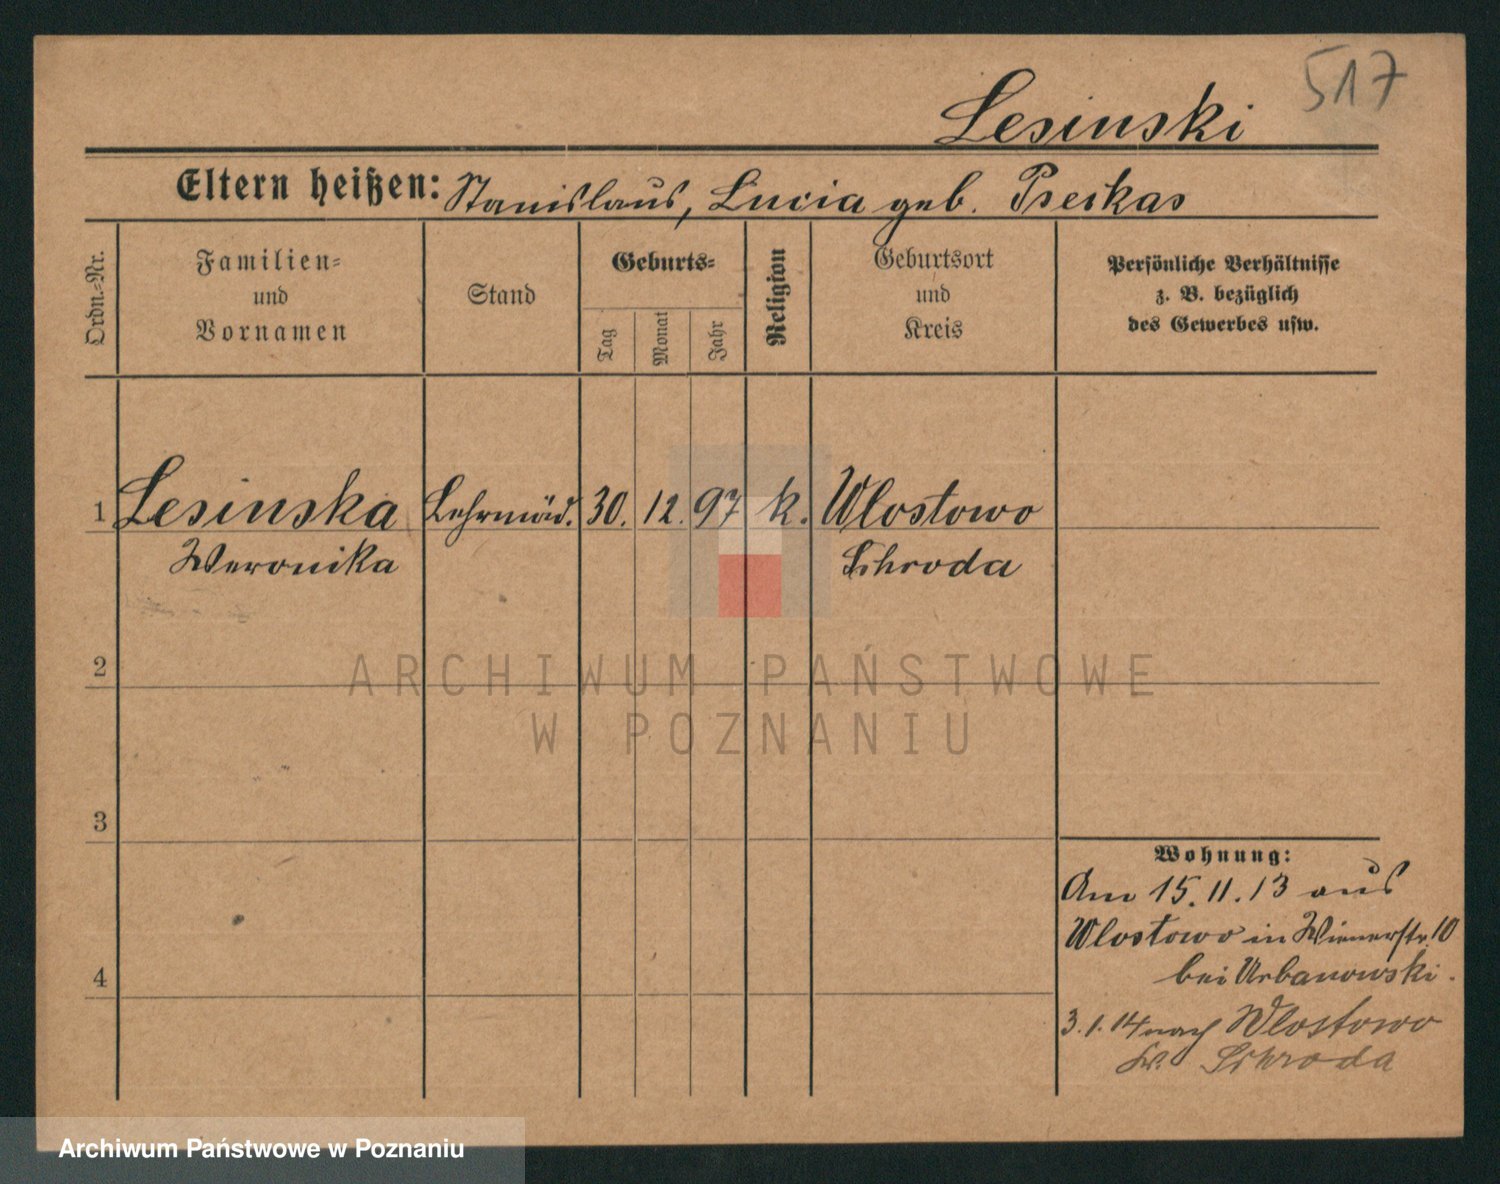 517
Lesinski
Eltern heißen: Stanislaus, Lucia geb. Pseikas
Ordn.-Nr.
Familien-
und
Vornamen
Stand
Geburts-
Tag
Monat
Jahr
Religion
Geburtsort
und
Kreis
Persönliche Verhältnisse
z. B. bezüglich
des Gewerbes usw.
1 Lesinska Lehrmäd. 30. 12. 97 k. Wlostowo
Weronika Schroda
2
3
4
Wohnung:
Am 15.11.13 aus
Wlostowo in Wienerstr. 10
bei Urbanowski.
3.1.14 nach Wlostowo
Kr. Schroda
ARCHIWUM PAŃSTWOWE
W POZNANIU
Archiwum Państwowe w Poznaniu